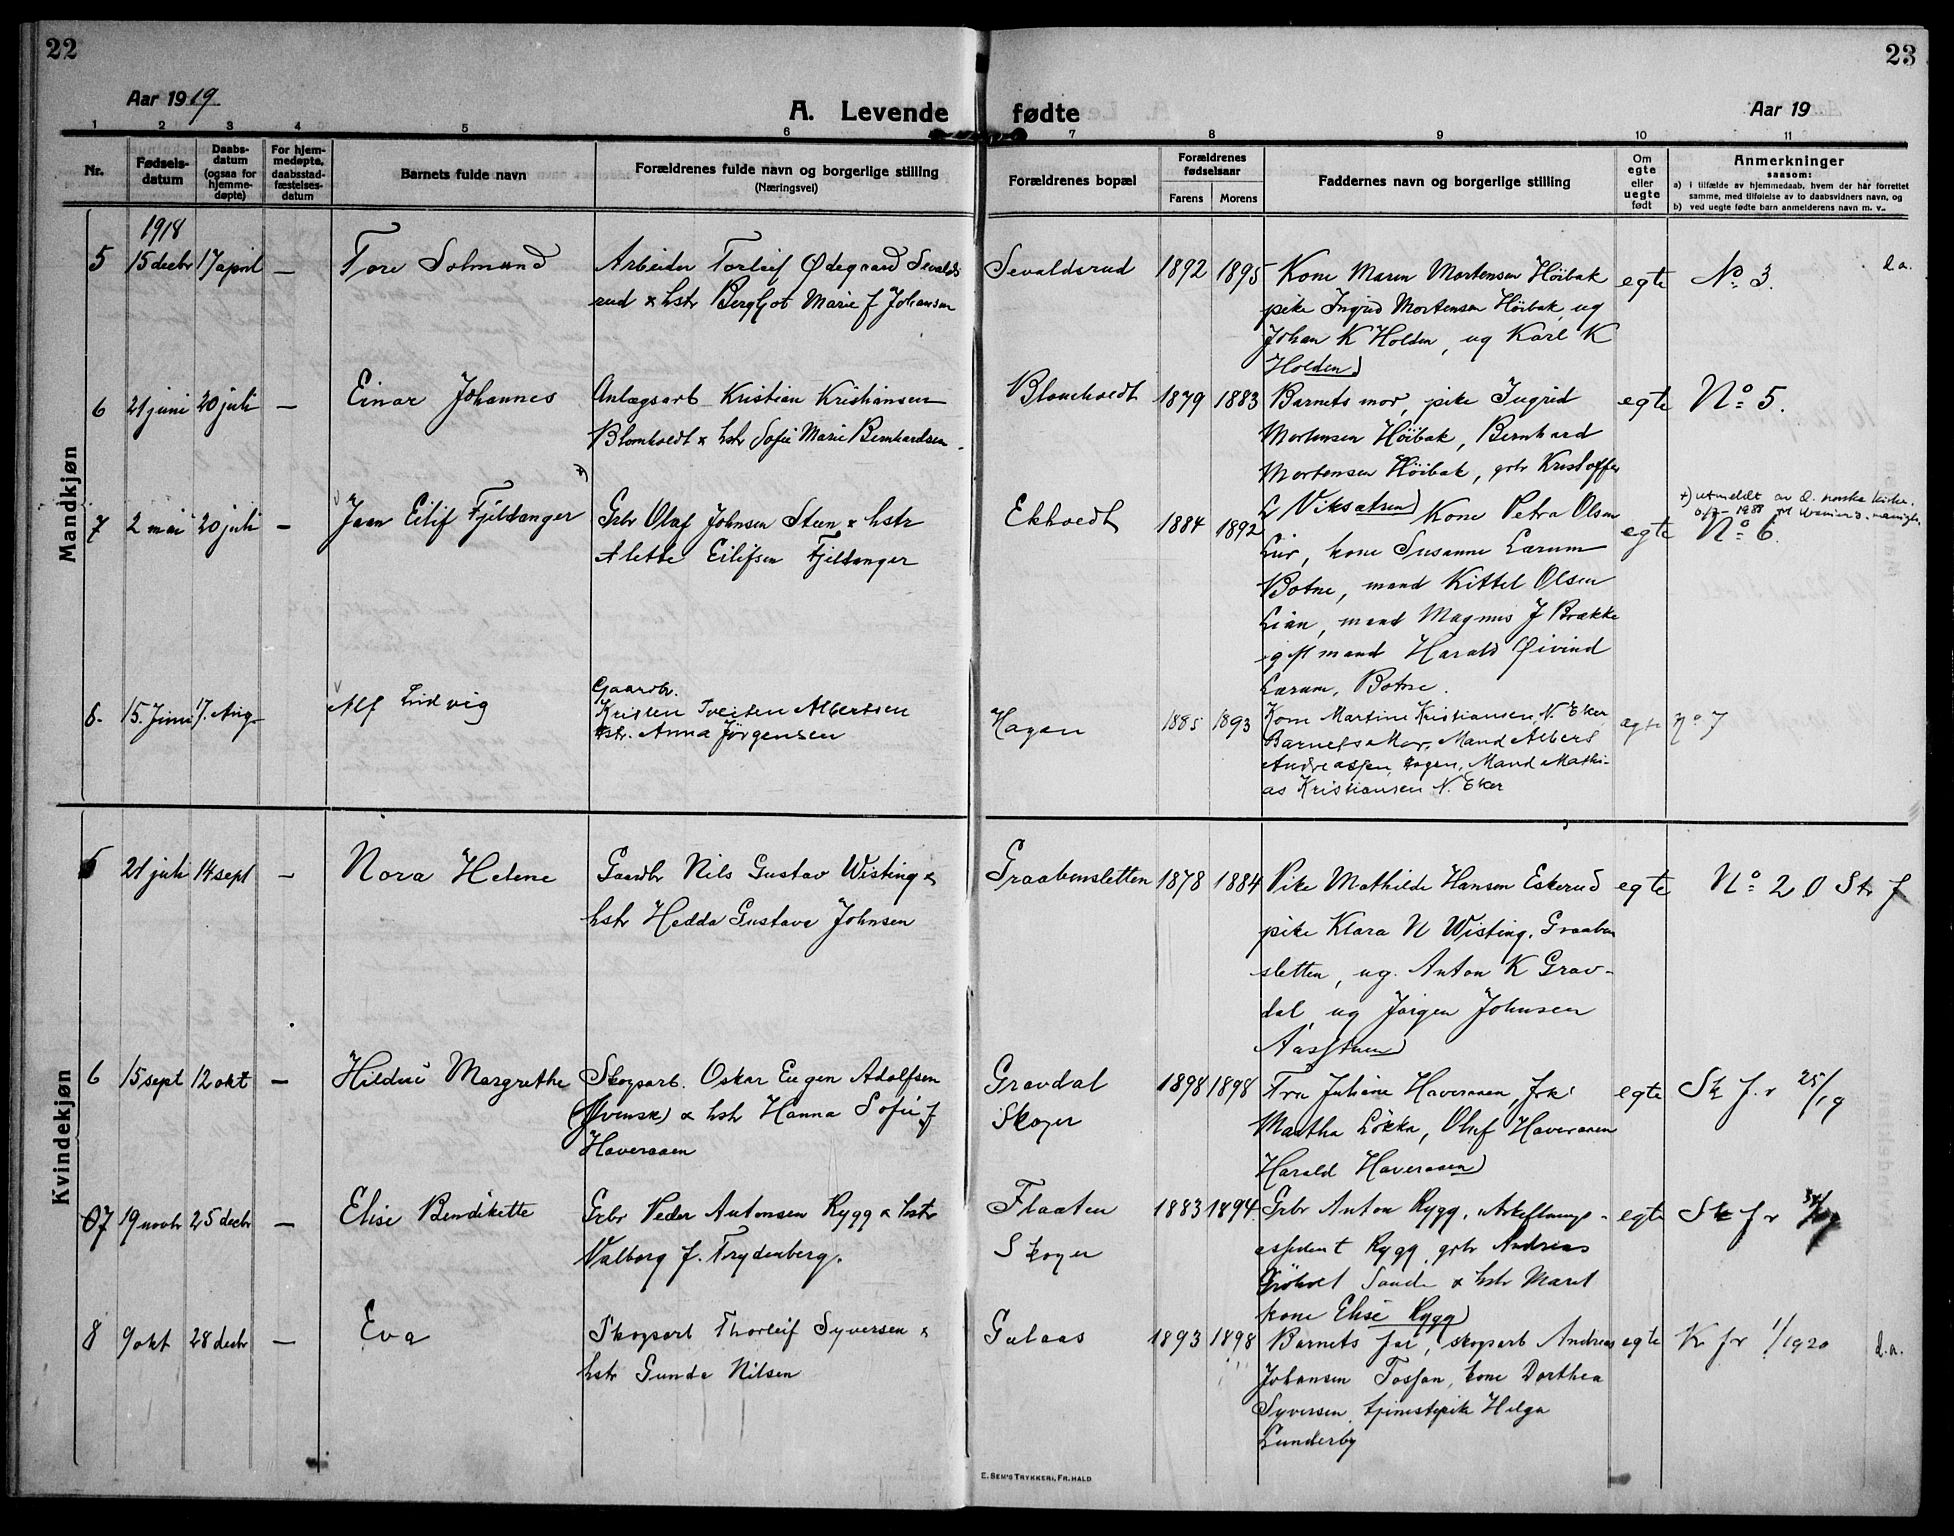 22
23
Aar 1919
A. Levende fødte
Aar 19
1 2 3 4 5 6 7 8 9 10 11
Nr.
Fødsels-
datum
Daabs-
datum
(ogsaa for
hjemme-
døpte)
For hjem-
medøpte,
daabsstad-
fæstelses-
datum
Barnets fulde navn
Forældrenes fulde navn og borgerlige stilling
(Næringsvei)
Forældrenes bopæl
Forældrenes
fødselsaar
Farens Morens
Faddernes navn og borgerlige stilling
Om
egte
eller
uegte
født
Anmerkninger
saasom:
a) i tilfælde av hjemmedaab, hvem der har forrettet
samme, med tilføielse av to daabsvidners navn, og
b) ved uegte fødte barn anmelderens navn m. v..
Mandkjøn
1918
5 15 decbr 17 april — Tore Solmund
Arbeider Torleif Ødegaard Sevalds
rud & hstr Bergljot Marie f Johansen
Sevaldsrud 1892 1895
Kone Maren Mortensen Höibak
pike Ingrid Mortensen Höibak, ug
Johan K Holden, ug Karl K
Holden
egte No 3. d.a.
6 21 juni 20 juli — Einar Johannes
Anlægsarb Kristian Kristiansen
Blomholdt & hstr Sofie Marie Bernhardsen.
Blomholdt 1879 1883
Barnets mor, pike Ingrid
Mortensen Höibak, Bernhard
Mortensen Höibak, gbr Kristoffer
L Viksatsen)
egte No 5.
7 2 mai 20 juli — Jaan Eilif Fjeldanger
Gbr Olaf Johnsen Steen & hstr
Alette Eilifsen Fjeldanger
Ekholdt 1884 1892
Kone Petra Olsen
Lier, kone Susanne Lærum
Botne, mand Kittel Olsen
Lian, mand Magnus J Brække
gift mand Harald Øivind
Lærum, Botne.
egte No 6.
+) utmeldt av d. norske kirke.
8. 15. Juni 17. Aug. Alf Ludvig
Gaardbr.
Kristen Tveiten Albertsen
hstr. Anna Jörgensen
Hagen 1885 1893
Kone Martine Kristiansen, N. Eker
Barnets Mor, Mand Albert
Andreassen, Hagen, Mand Mathi-
as Kristiansen N. Eker
egte No 7
Kvindekjøn
5 21 juli 14 sept — Nora Helene
Gaardbr Nils Gustav Wisting &
hstr Hedda Gustava Johnsen
Graabensletten 1878 1884
Pike Mathilde Hansen Eskerud
pike Klara N Wisting, Graaben
sletten, ug. Anton K Grav-
dal, ug Jörgen Johnsen
egte No 20 Str f
6 15 sept 12 okt — Hildur Margrethe
Skogsarb. Oskar Eugen Adolfsen
(Svensk) & hstr Hanna Sofie f
Haveraaen
Gravdal
Skoger
1898 1898
Fru Juliane Haveraaen, frk
Martha Løkka, Oluf Haveraaen
Harald Haveraaen)
egte Sk f. r 25/19
7 19 novbr 25 decbr — Elise Bendikette
Gbr Peder Antonsen Rygg & hstr
Valborg f. Frydenberg.
Flaaten
Skoger
1883 1894
Gbr Anton Rygg,
Rygg, gbr Andreas
Sande & hstr Marit
kone Elise Rygg)
egte Sk f r
8 9 okt 28 decbr — Eva
Skogsarb Thorleif Syversen &
hstr Gunda Nilsen
Galaas 1893 1898
Barnets far, skogsarb Andreas
Johansen Fossan, kone Dorthea
Syversen, tjenestepike Helga
Lunderby
egte K f r 1/1920 d.a.
E. SEM'S TRYKKERI, FR.HALD